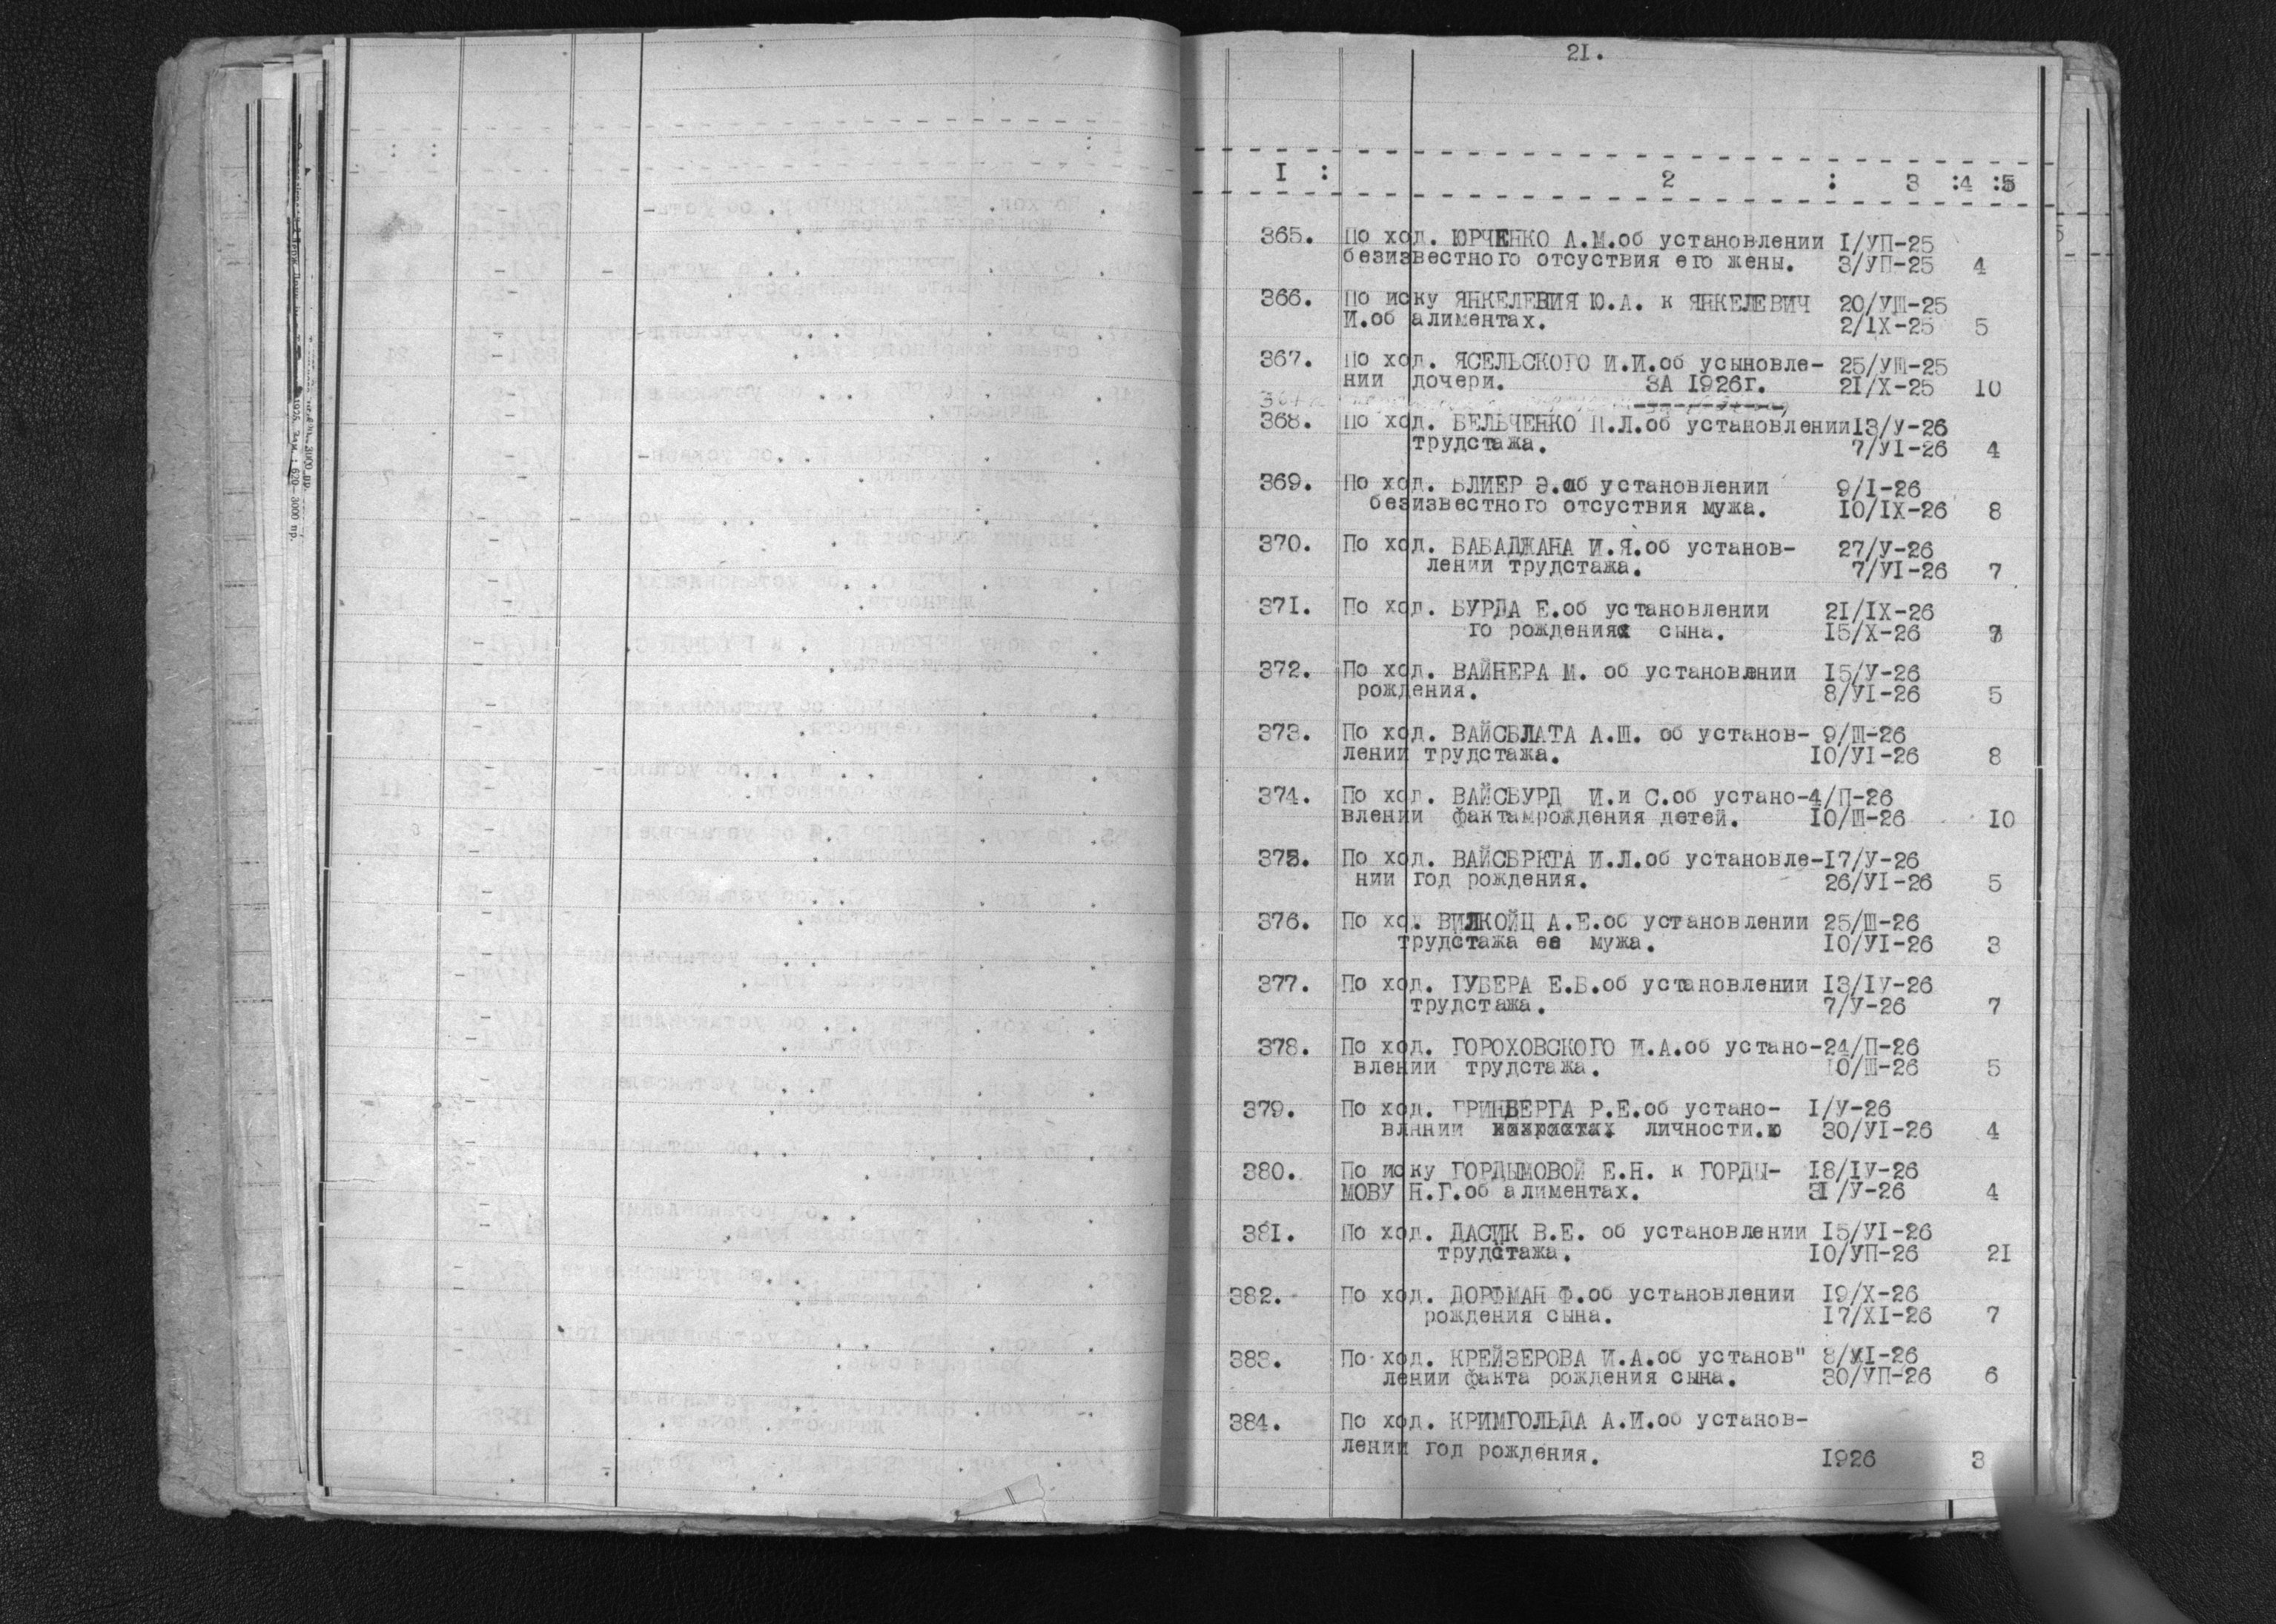 21.
I : 2 : 3 :4 :5
365. По ход. ЮРЧЕНКО А.М.об установлении I/УП-25
безизвестного отсуствия его жены. 3/УП-25 4
366. По иску ЯНКЕЛЕВИЯ Ю.А. к ЯНКЕЛЕВИЧ 20/УШ-25
И.об алиментах. 2/IX-25 5
367. По ход. ЯСЕЛЬСКОГО И.И.об усыновле- 25/УШ-25
нии дочери. ЗА 1926г. 21/X-25 10
368. По ход. БЕЛЬЧЕНКО П.Л.об установлении13/У-26
трудстажа. 7/УI-26 4
369. По ход. БЛИЕР Э.об установлении 9/I-26
безизвестного отсуствия мужа. 10/IX-26 8
370. По ход. БАБАДЖАНА И.Я.об установ- 27/У-26
лении трудстажа. 7/УI-26 7
371. По ход. БУРДА Е.об установлении 21/IX-26
го рождения сына. 15/X-26 7
372. По ход. ВАЙНЕРА М. об установлении 15/У-26
рождения. 8/УI-26 5
373. По ход. ВАЙСБЛАТА А.Ш. об установ- 9/Ш-26
лении трудстажа. 10/УI-26 8
374. По ход. ВАЙСБУРД И.и С.об устано-4/П-26
влении фактамрождения детей. 10/Ш-26 10
375. По ход. ВАЙСБРКТА И.Л.об установле-17/У-26
нии год рождения. 26/УI-26 5
376. По ход ВИЛКОЙЦ А.Е.об установлении 25/Ш-26
трудстажа ее мужа. 10/УI-26 3
377. По ход. ГУБЕРА Е.Б.об установлении 13/IУ-26
трудстажа. 7/У-26 7
378. По ход. ГОРОХОВСКОГО И.А.об устано-24/П-26
влении трудстажа. 10/Ш-26 5
379. По ход. ГРИНБЕРГА Р.Е.об устано- I/У-26
влнии личности.ю 30/УI-26 4
380. По иску ГОРДЫМОВОЙ Е.Н. к ГОРДЫ- 18/IУ-26
МОВУ Н.Г.об алиментах. 31/У-26 4
381. По ход. ДАСИК В.Е. об установлении 15/УI-26
трудстажа. 10/УП-26 21
382. По ход. ДОРФМАН Ф.об установлении 19/X-26
рождения сына. 17/XI-26 7
383. По ход. КРЕЙЗЕРОВА И.А.об установ" 8/XI-26
лении факта рождения сына. 30/УП-26 6
384. По ход. КРИМГОЛЬДА А.И.об установ-
лении год рождения. 1926 3